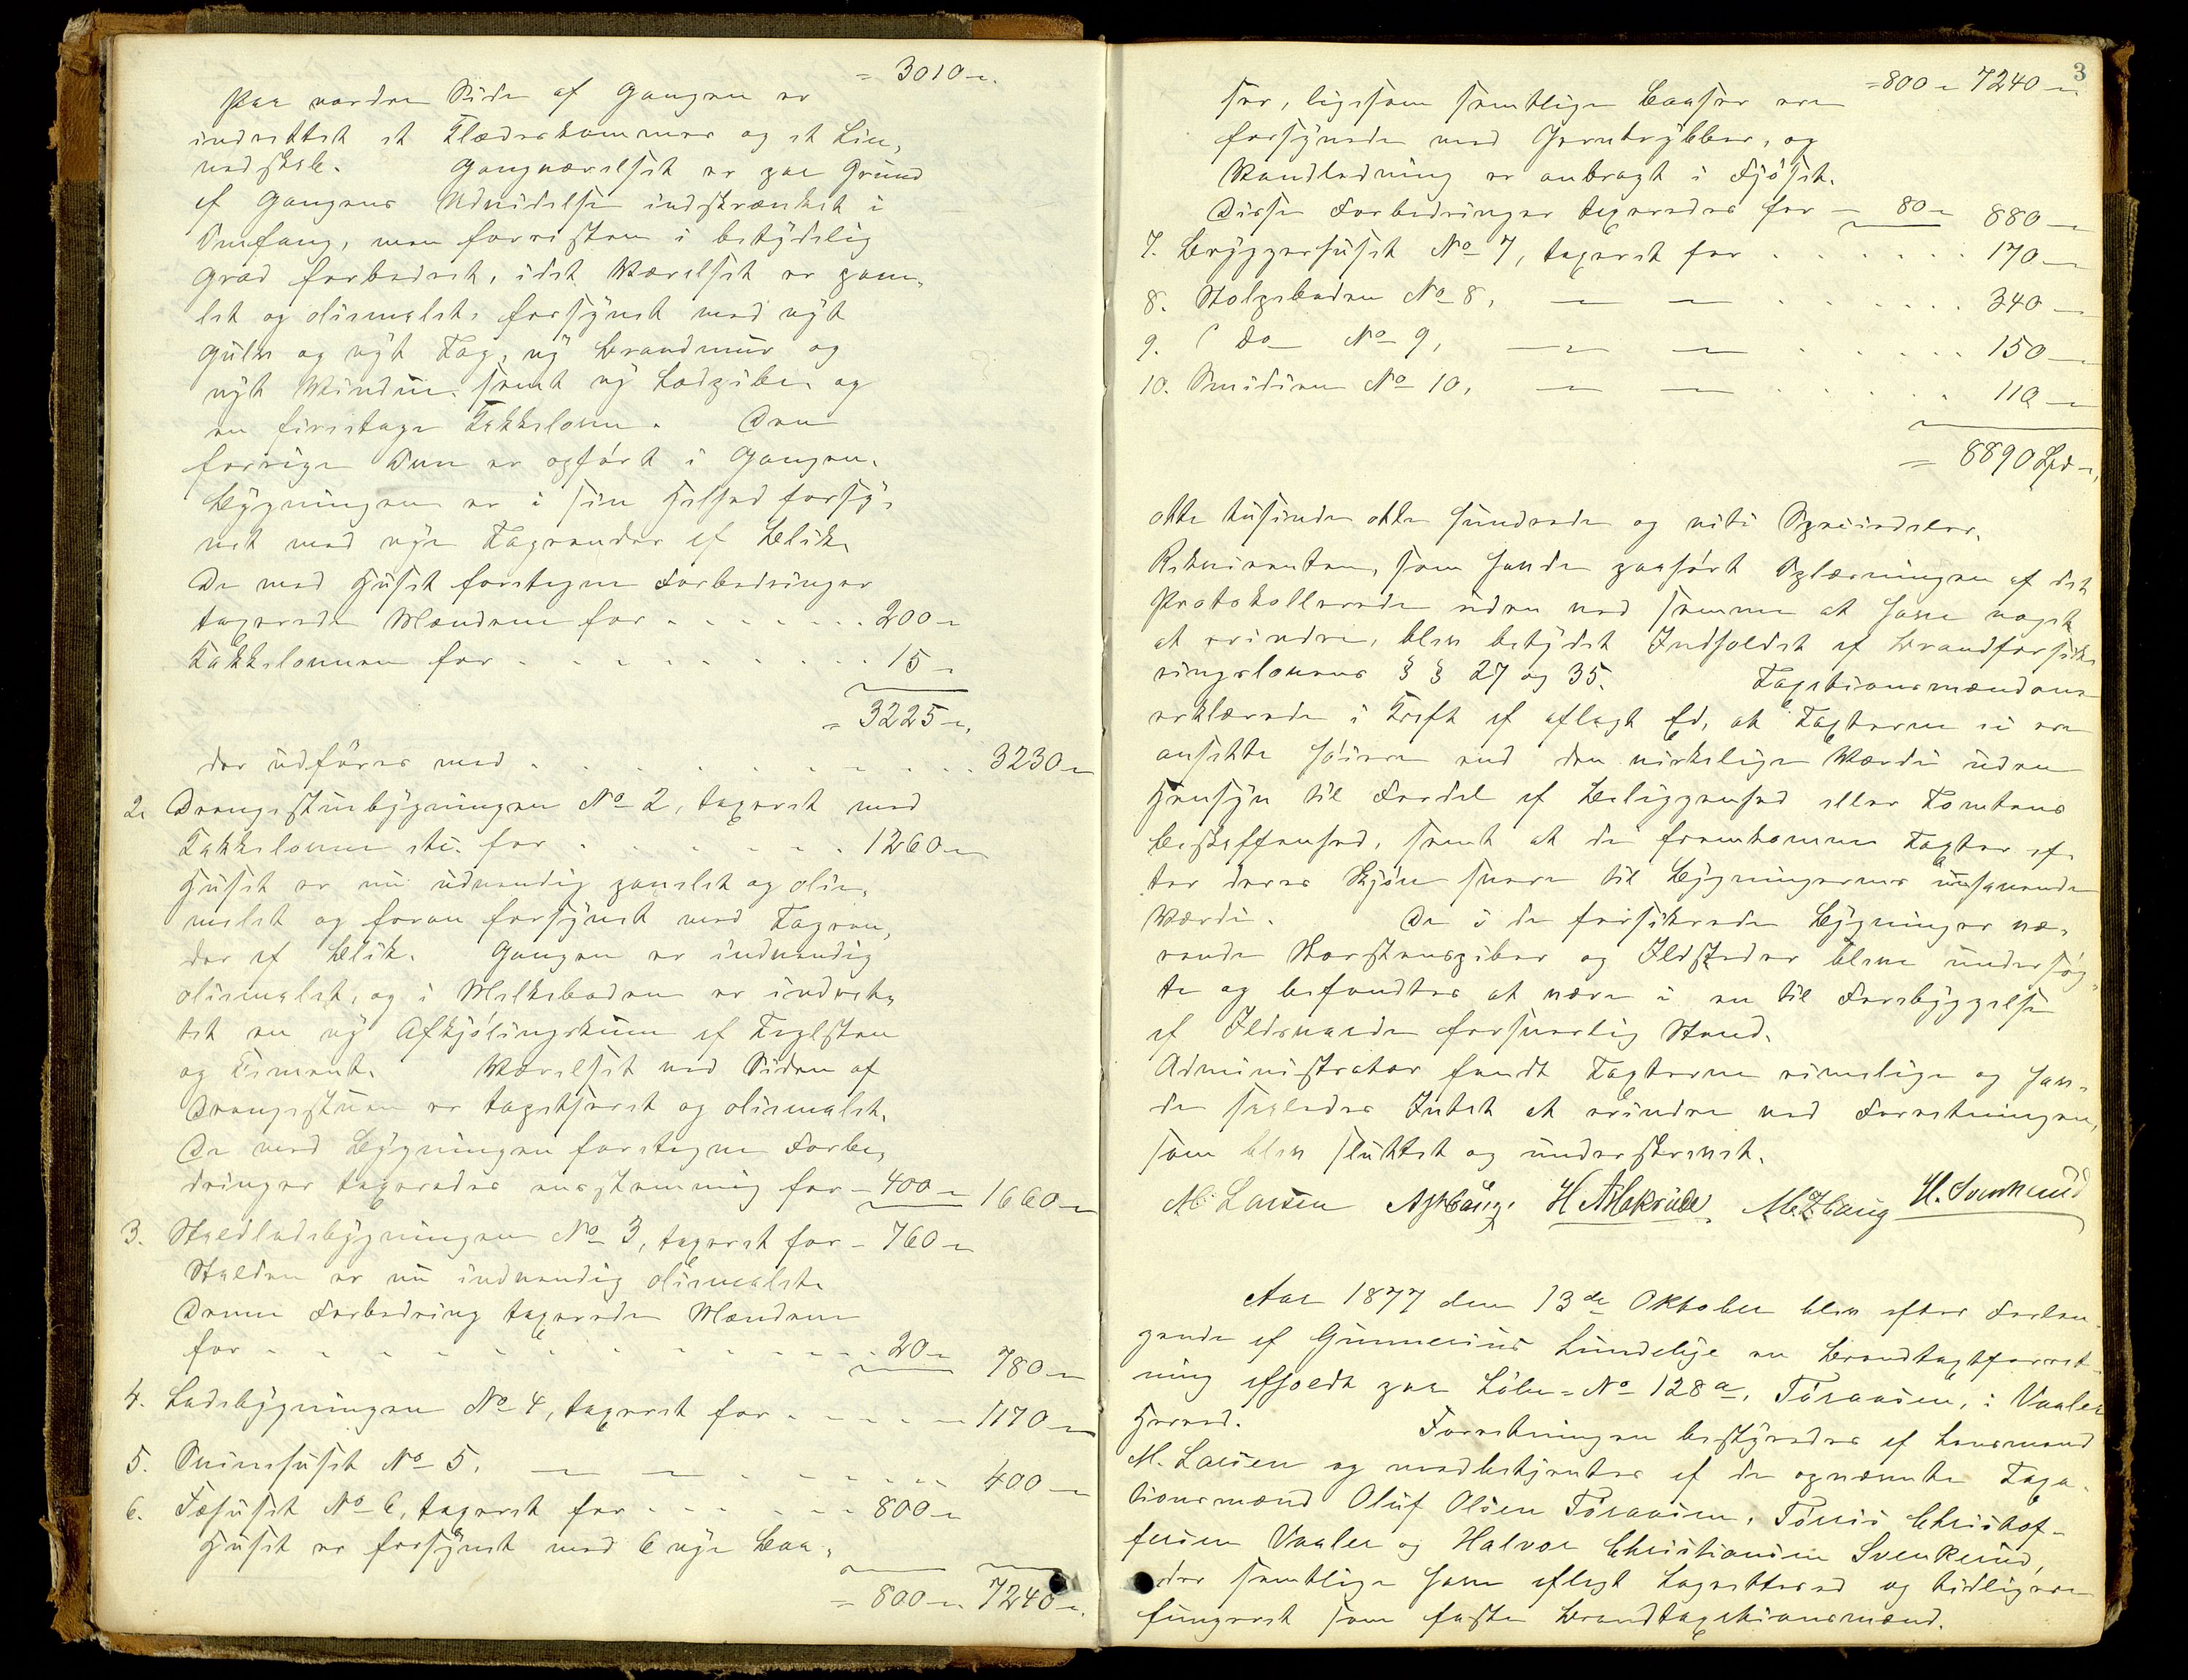 = 3010 -
Paa nordre Side af Gangen er
indrettet et Klæderkammer og et Lin-
nedskab. Gangværelset er paa Grund
af Gangens Udvidelse indskrænket i
Omfang, men forresten i betydelig
Grad forbedret, idet Værelset er pane-
let og oliemalet, forsynet med nyt
Gulv og nyt Tag, ny Brandmur og
nyt Vindu, samt ny Ladpibe og
en fireetages Kakkelovn. Den
forrige Ovn er opført i Gangen.
Bygningen er i sin Helhed forsy-
net med nye Tagrender af Blik.
De med Huset foretagne Forbedringer
taxerede Mændene for - - - - - - 200 -
Kakkelovnen for - - - - - - - - 15 -
= 3225 -
der udføres med - - - - - - - - - 3230 -
2. Drengestuebygningen No 2, taxeret med
Kakkelovne etc. for - - - - - - 1260 -
Huset er nu udvendig panelet og olie-
malet og foran forsynet med Tagren-
der af Blik. Gangen er indvendig
oliemalet, og i Melkeboden er indret-
tet en ny Afkjølingskum af Teglsten
og Cement. Værelset ved Siden af
Drengestuen er tapetseret og oliemalet.
De med Bygningen foretagne Forbe-
dringer taxeredes enstemmig for - 400 - 1660 -
3. Staldladebygningen No 3, taxeret for - 760 -
Stalden er nu indvendig oliemalet.
Denne Forbedring taxerede Mændene
for - - - - - - - - - - - - 20 - 780 -
4. Ladebygningen No 4, taxeret for - - - - - 1170 -
5. Svinehuset No 5, — — - - - - - 400 -
6. Fæhuset No 6, taxeret for - - - - - 800 -
Huset er forsynet med 6 nye Baa-
= 800 - 7240 -
3
= 800 - 7240 -
ser, ligesom samtlige Baaser ere
forsynede med Jernkrybber, og
Vandledning er anbragt i Fjøset.
Disse Forbedringer taxeredes for - 80 - 880 -
7. Bryggerhuset No 7, taxeret for . . . . . . 170 -
8. Stolpeboden No 8, — — . . . . . . 340 -
9. Do No 9, — — . . . . . 150 -
10. Smidien No 10, — — . . . . . 110 -
= 8890 Spd -
otte tusinde otte hundrede og niti Speciedaler.
Rekvirenten, som havde paahørt Oplæsningen af det
Protokollerede uden ved samme at have noget
at erindre, blev betydet Indholdet af Brandforsik-
ringslovens § § 27 og 35. Taxationsmændene
erklærede i Kraft af aflagt Ed, at Taxterne ei ere
ansatte høiere end den virkelige Værdi uden
Hensyn til Fordel af Beliggenhed eller Tomtens
Beskaffenhed, samt at de fremkomne Taxter ef-
ter deres Skjøn svare til Bygningernes nuhavende
Værdi. De i de forsikrede Bygninger væ-
rende Skorstenspiber og Ildsteder bleve undersøg-
te og befandtes at være i en til Forebyggelse
af Ildsvaade forsvarlig Stand.
Administrator fandt Taxterne rimelige og hav-
de saaledes Intet at erindre ved Forretningen,
som blev sluttet og underskrevet.
M. Larsen H. H. Svenkerud
Aar 1877 den 13de Oktober blev efter Forlan-
gende af Gunnerius Lundebye en Brandtaxtforret-
ning afholdt paa Løbe-No 128a, Tøraasen, i Vaaler
Herred. Forretningen bestyredes af Lensmand
M. Larsen og medbetjentes af de opnævnte Taxa-
tionsmænd Oluf Olsen Tøraasen, Tørris Christof-
fersen Vaaler og Halvor Christiansen Svenkerud,
der samtlige have aflagt Lagretteed og tidligere
fungeret som faste Brandtaxationsmænd.